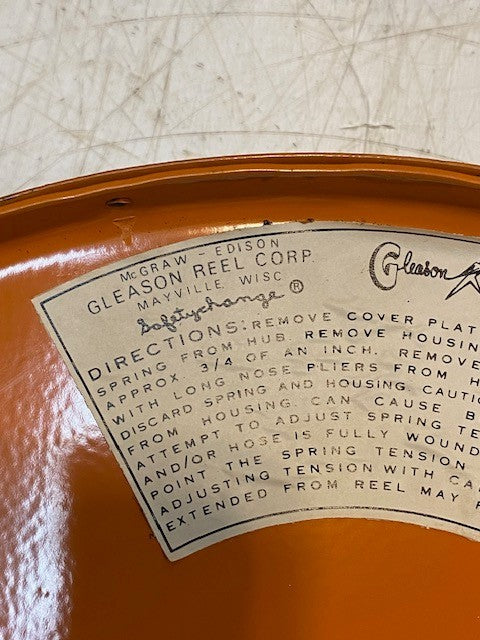 McGRAW - EDISON
GLEASON REEL CORP.
MAYVILLE WISC
Safetychange ®
Gleason
DIRECTIONS: REMOVE COVER PLAT
SPRING FROM HUB. REMOVE HOUSIN
APPROX. 3/4 OF AN INCH. REMOVE
WITH LONG NOSE PLIERS FROM H
DISCARD SPRING AND HOUSING. CAUTIO
FROM HOUSING CAN CAUSE B
ATTEMPT TO ADJUST SPRING TE
AND/OR HOSE IS FULLY WOUND
POINT THE SPRING TENSION
ADJUSTING TENSION WITH CA
EXTENDED FROM REEL MAY